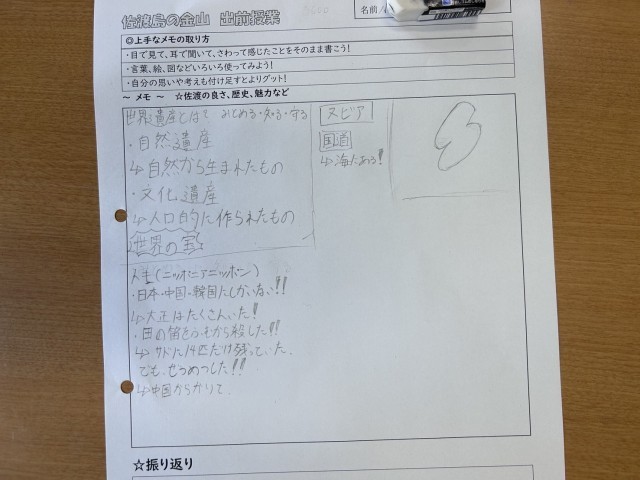 佐渡島の金山 出前授業
名前
◎上手なメモの取り方
・目で見て、耳で聞いて、さわって感じたことをそのまま書こう!
・言葉、絵、図などいろいろ使ってみよう!
・自分の思いや考えも付け足すとよりグット!
~ メモ ~ ☆佐渡の良さ、歴史、魅力など
世界遺産とは? みとめる・知る・守る
・自然遺産
↳自然から生まれたもの
・文化遺産
↳人口的に作られたもの
世界の宝
ヌビア
国道
↳海にある!
(ニッポニアニッポン)
・日本・中国・韓国にしかいない!!
↳大正はたくさんいた!
・田の苗を から殺した!!
↳サドに14匹だけ残っていた、
でも、ぜつめつした!!
↳中国からかりて、
☆振り返り